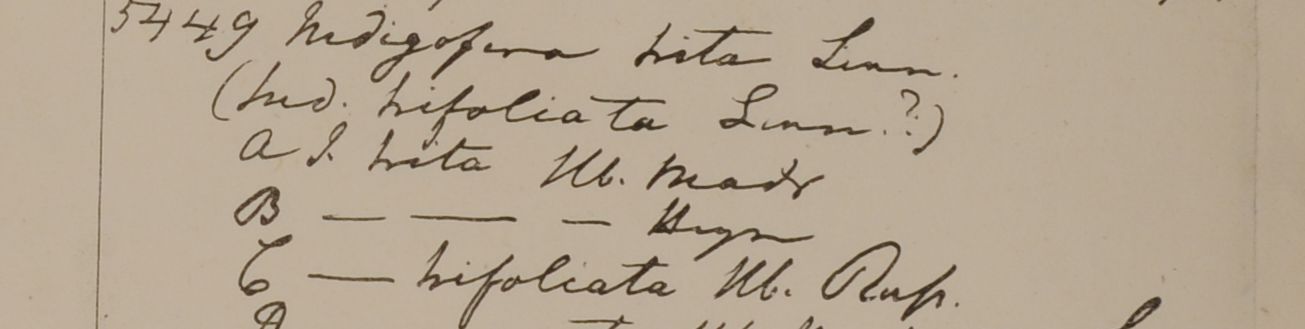 5449 Indigofera trita Linn.
(Ind. trifoliata Linn.?)
a I. trita Hb. Madr
B — — — Heyn
C — trifoliata Hb. Russ.